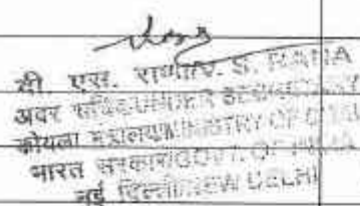 वी. एस. राणा/V. S. RANA
अवर सचिव/UNDER SECRETARY
कोयला मंत्रालय/MINISTRY OF COAL
भारत सरकार/GOVT. OF INDIA
नई दिल्ली/NEW DELHI